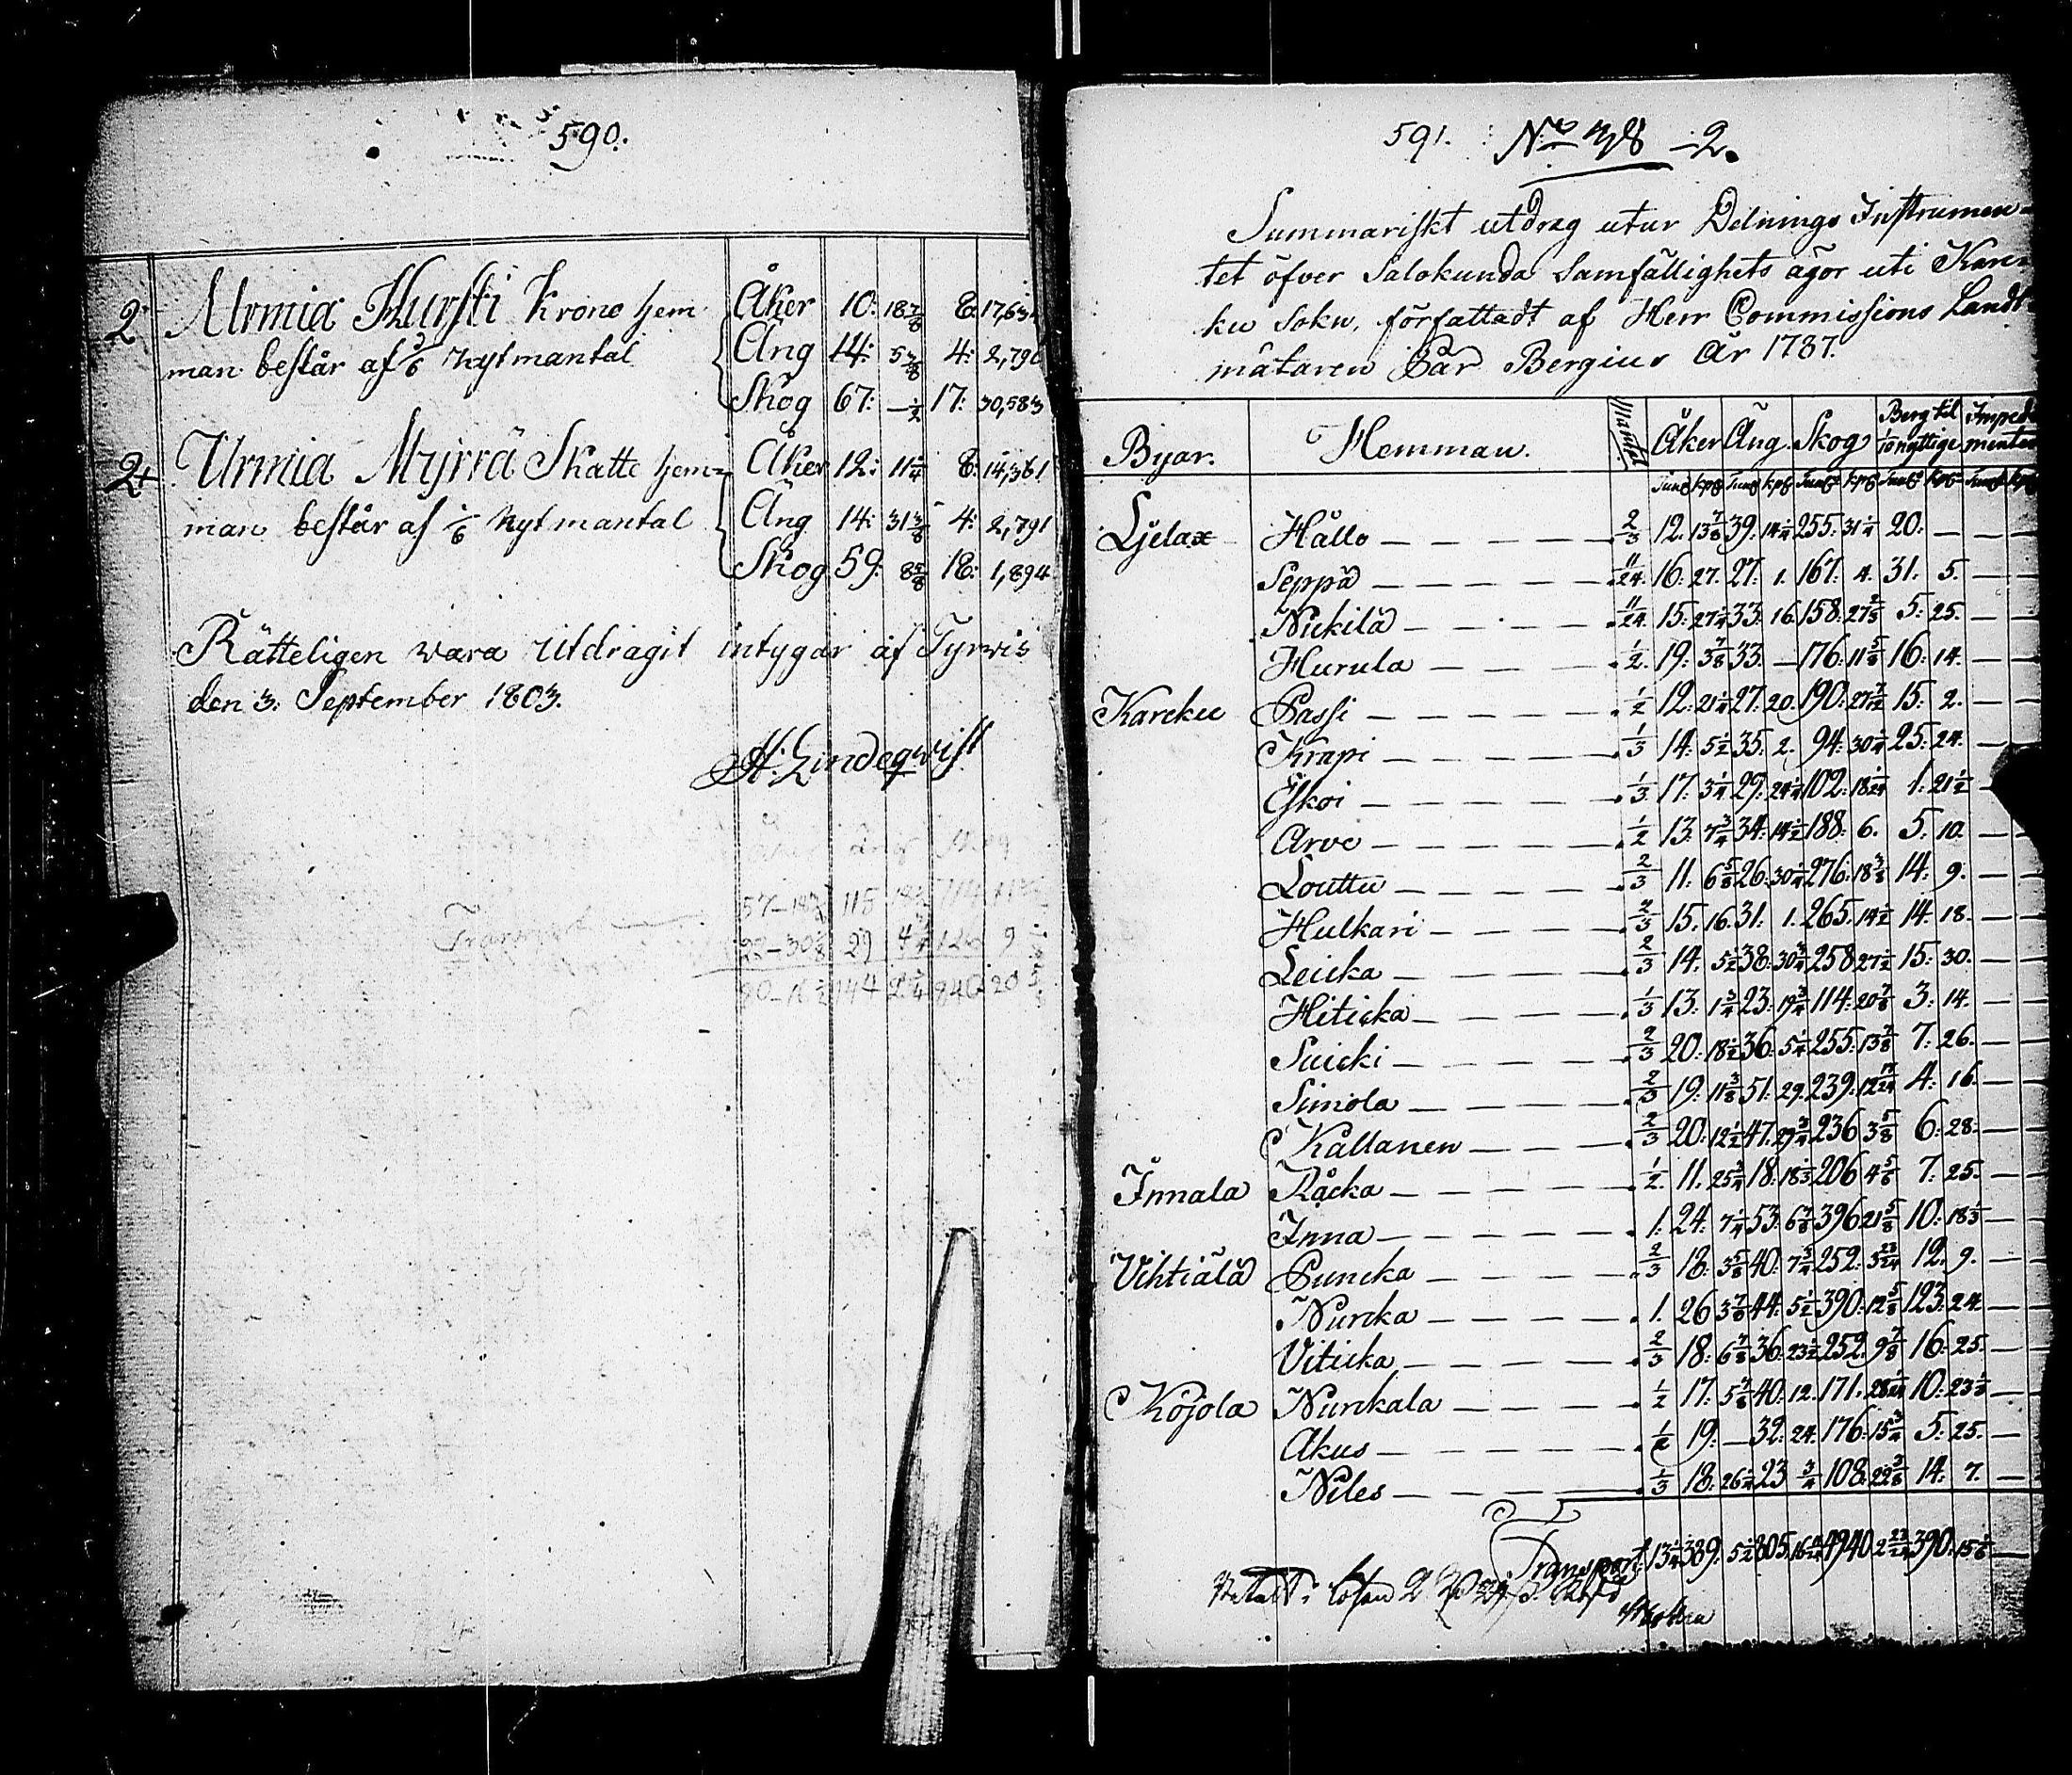 590.
2 Urmia Hurski Krono hem- Åker 10: 18 7/8 8: 17,63
man består af 3/6 nytmantal Äng 14: 5 3/8 4: 2,790
Skog 67: — 1/2 17: 30,583
2 Urmia Myrrä Skatte hem- Åker 12: 11 1/4 8: 14,361
man består af 1/6 nytmantal Äng 14: 31 3/8 4: 2,791
Skog 59: 8 5/8 18: 1,894
Rätteligen vara utdragit intygar af Tyrwis
den 3. September 1803.
A. Lindeqwist
591. No 38 2.
Summariskt utdrag utur Delnings Instrumen-
tet öfver Salokunda Samfällighets ägor uti Kar-
ku Sokn, författadt af Herr Commissions Landt-
mätaren Pär Bergius År 1787.
Byar. Hemman. Mantal Åker Äng. Skog Berg til 1/10 nyttige Impedimenter
Tunl kpl Tunl kpl Tunl kpl Tunl kpl Tunl kpl
Ljelax Hållo 2/3 12. 13 7/8 39. 14 1/4 255. 31 1/4 20. — — —
Seppä 11/24 16: 27. 27: 1. 167: 4. 31. 5. — —
Nickilä 11/24 15: 27 1/4 33: 16. 158: 27 2/3 5: 25. — —
Hurula 1/2 19: 3 7/8 33. — 176: 11 5/8 16: 14. — —
Karcku Passi 1/2 12: 21 1/4 27. 20. 190: 27 7/12 15: 2. — —
Krapi 1/3 14. 5 1/2 35. 2. 94: 30 1/4 25: 24. —
Eskoi 1/3 17: 3 1/4 29: 24 1/4 102: 18 1/24 1: 21 1/2 —
Arve 1/2 13: 7 3/4 34: 14 1/2 188: 6. 5: 10. — —
Louttu 2/3 11: 6 5/8 26: 30 1/4 276: 18 3/8 14: 9. — —
Hulkari 2/3 15. 16. 31: 1. 265. 14 1/2 14: 18. — —
Leicka 2/3 14. 5 1/2 38. 30 3/4 258 27 1/2 15: 30. — —
Hiticka 1/3 13: 1 3/4 23: 19 3/4 114: 20 7/8 3: 14. — —
Suicki 2/3 20: 18 1/2 36: 5 1/4 255: 13 7/8 7: 26. — —
Simola 2/3 19: 11 3/8 51: 29. 239: 12 17/24 4: 16. — —
Kallanen 2/3 20: 12 1/2 47. 29 3/4 236 3 5/8 6: 28. — —
Innala Råcka 1/2 11. 25 3/4 18: 18 1/3 206 4 5/6 7: 25. — —
Inna 1. 24. 7 1/4 53: 6 7/8 396 21 5/8 10: 18 1/3 — —
Vihtiälä Puncka 2/3 18: 3 5/8 40: 7 3/4 252: 3 23/24 12. 9. — —
Nurcka 1. 26 3 7/8 44: 5 1/2 390: 12 5/8 123: 24 — —
Viticka 2/3 18: 6 7/8 36: 23 1/2 252. 9 7/8 16: 25. — —
Kojola Nurckala 1/2 17: 5 7/8 40: 12. 171. 28 1/24 10: 23 1/3 — —
Akus 1/2 19: — 32: 24. 176: 15 3/4 5: 25. — —
Niles 1/3 18. 26 1/4 23 3/4 108: 22 3/8 14: 7. — —
Transport 13 1/4 389: 5 1/2 805. 4940. 2 23/24 390. 15 1/6 —